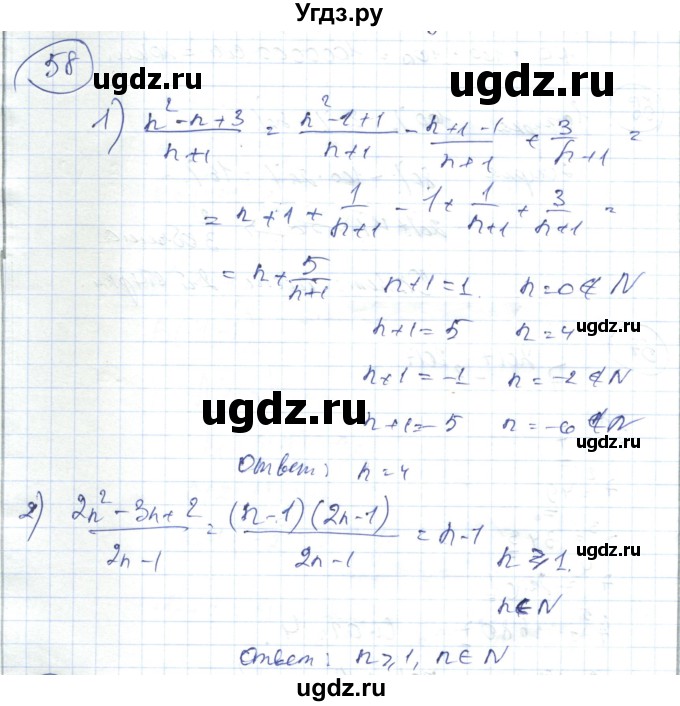 Угдз.ру
58
ugdz.ru
ugdz.ru
1) (n² - n + 3)/(n+1) = (n² - 1 + 1)/(n+1) - (n + 1 - 1)/(n+1) + 3/(n+1) =
= n + 1 + 1/(n+1) - 1 + 1/(n+1) + 3/(n+1) =
= n + 5/(n+1) n+1 = 1. n = 0 ∉ N
n+1 = 5 n = 4
ugdz.ru
n+1 = -1 n = -2 ∉ N
ugdz.ru
n+1 = -5 n = -6 ∉ N
ugdz.ru
Ответ: n = 4
2) (2n² - 3n + 2)/(2n - 1) = (n - 1)(2n - 1)/(2n - 1) = n - 1
n ⩾ 1.
ugdz.ru
n ∈ N
Ответ: n ⩾ 1, n ∈ N
ugdz.ru
ugdz.ru